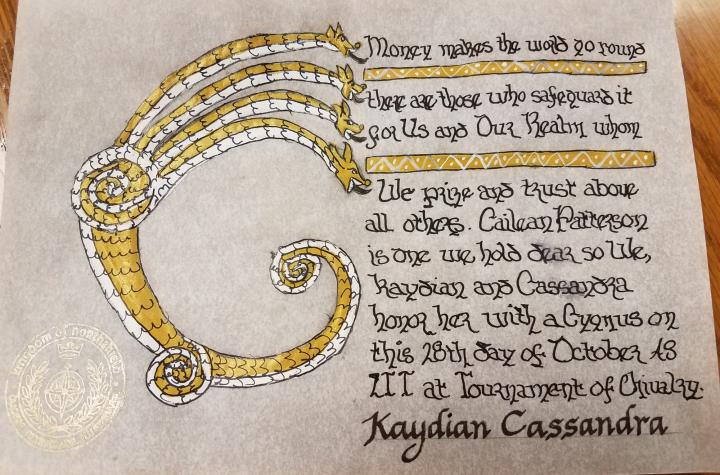 Money makes the world go round
there are those who safeguard it
for Us and Our Realm whom
We prize and trust above
all others. Cailean Patterson
is one we hold dear so We,
Kaydian and Cassandra
honor her with a Cygnus on
this 28th day of October AS
LII at Tournament of Chivalry.
Kaydian Cassandra
Kingdom of Northshield